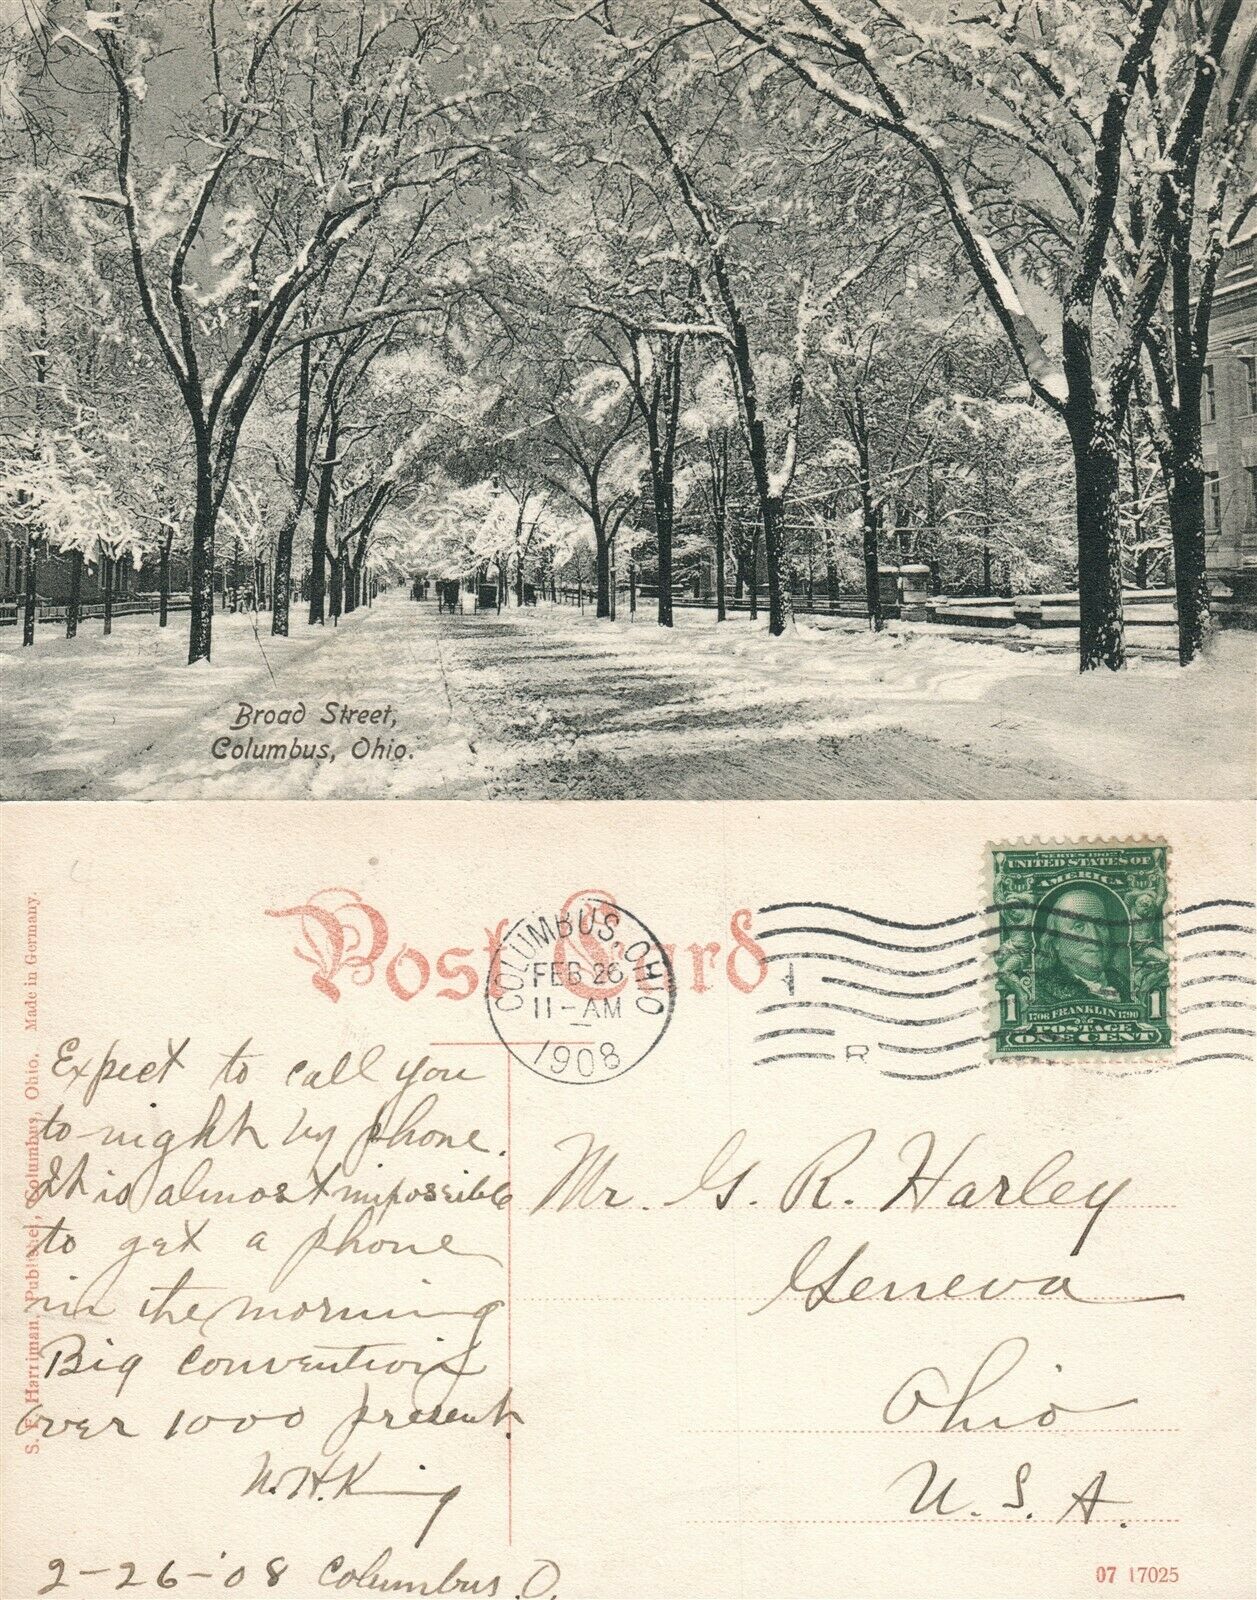 Broad Street,
Columbus, Ohio.
S. F. Harriman, Publisher, Columbus, Ohio. Made in Germany.
Post Card
COLUMBUS, OHIO
FEB 26
11-AM
1908
R
SERIES 1902
UNITED STATES OF
AMERICA
1 1
1706 FRANKLIN 1790
POSTAGE
ONE CENT
Expect to call you
to-night by phone.
It is almost impossible
to get a phone
in the morning
Big convention
over 1000 present.
H. King
2-26-'08 Columbus. O.
Mr. G. R. Harley
Geneva
Ohio
U. S. A.
07 17025